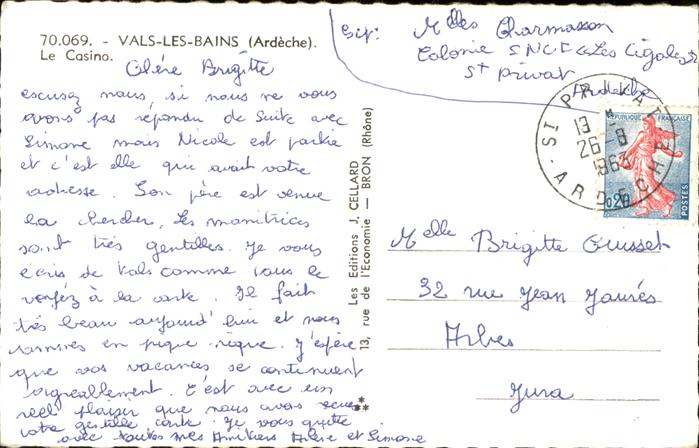 70.069. - VALS-LES-BAINS (Ardèche).
Le Casino.
Chère Brigitte
escusez nous, si nous ne vous
avons pas répondu de suite avec
Simone mais Nicole est partie
et c'est elle qui avait votre
adresse. Son père est venue
la chercher, les monitrices
sont très gentilles. Je vous
écris de Vals comme vous le
voyez à la carte. Il fait
très beau aujourd'hui et nous
sommes en pique-nique. J'espère
que vos vacances se continuent
agreablement. C'est avec un
réel plaisir que nous avons recu
votre gentille carte. Je vous quitte
avec toutes mes Amitiés et Simone
Les Editions J. CELLARD
13, rue de l'Economie — BRON (Rhône)
Exp: Melles Charmasson
Colonie SNCF "Les Cigales"
St Privat
Ardèche
ST PRIVAT
13 H
26-8
1963
ARDECHE
REPUBLIQUE FRANÇAISE
0,20
POSTES
Melle Brigitte Ousset
32 rue Jean Jaurés
Jura